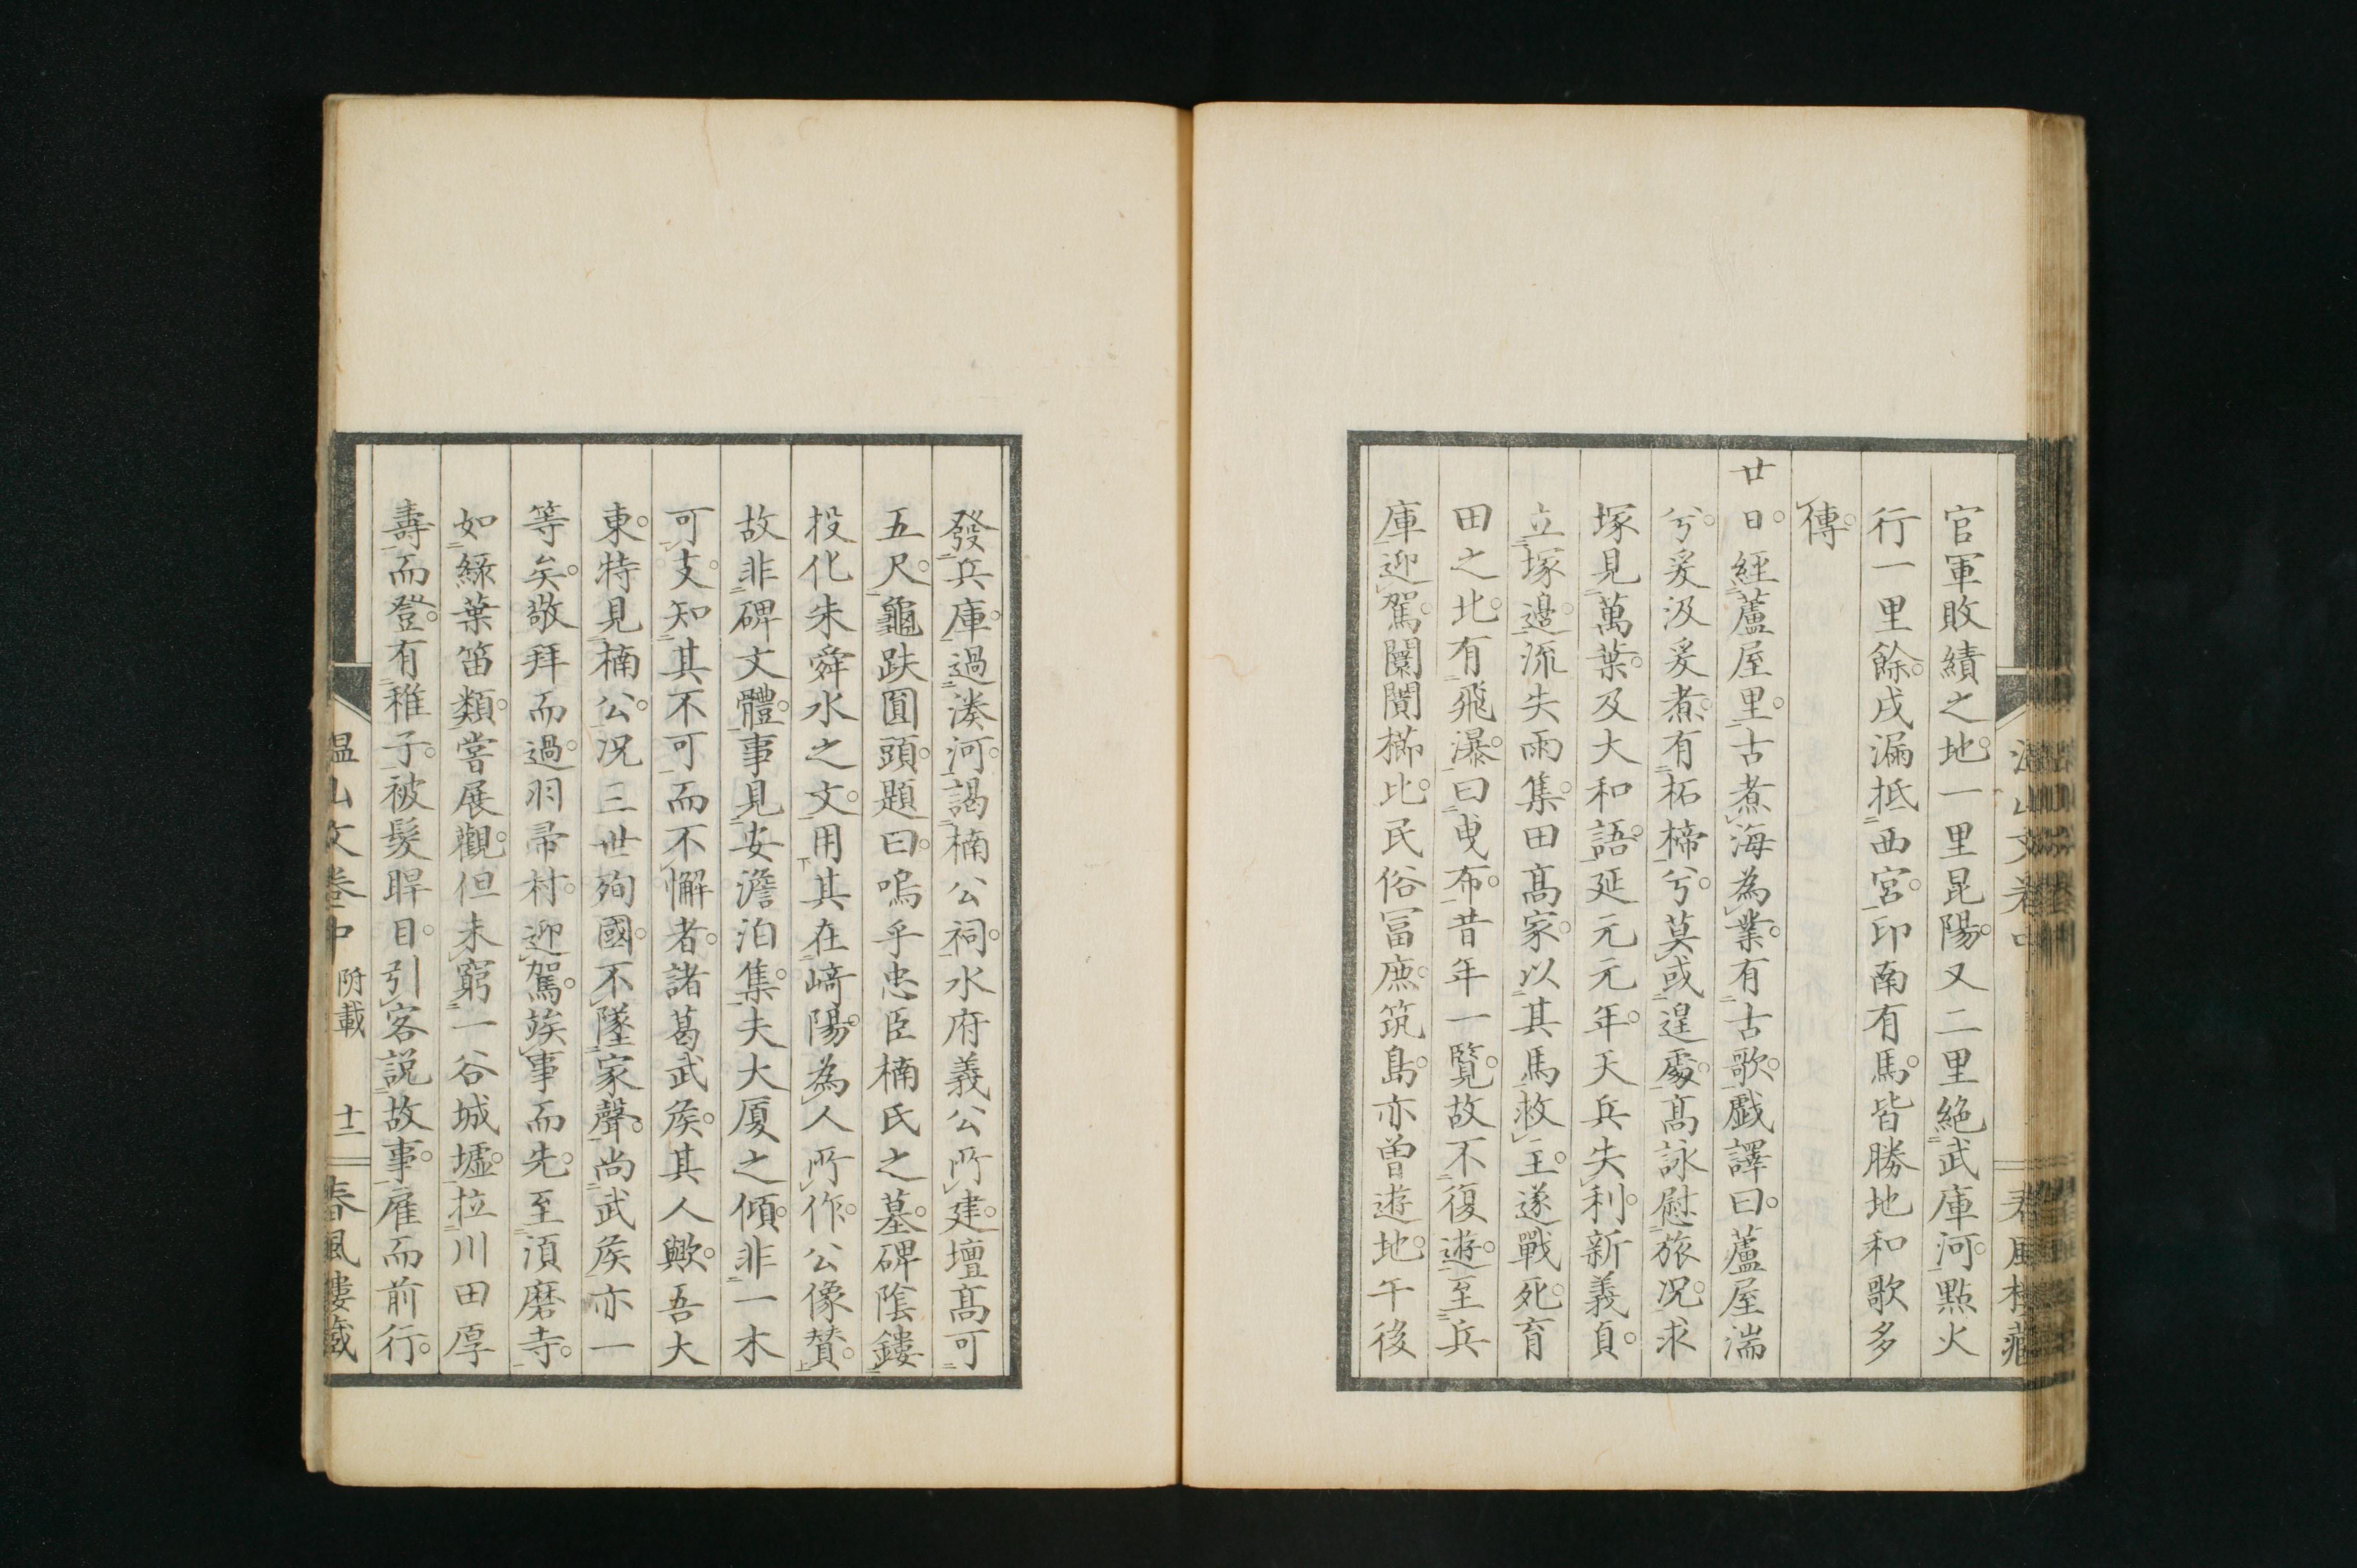 官軍敗績之地。一里昆陽。又二里絶武庫河。點火
行一里餘。戌漏抵西宮。印南有馬。皆勝地和歌多
傳。
廿日。經蘆屋里。古煮海為業。有古歌。戯譯曰。蘆屋湍
兮。爰汲爰煮。有柘楴兮。莫或遑處。髙詠慰旅况。求
塚見萬葉。及大和語。延元元年。天兵失利。新義貞。
立塚邉。流矢雨集。田髙家。以其馬救主。遂戰死。育
田之北。有飛瀑。曰曳布。昔年一覽。故不復遊。至兵
庫迎駕。闤闠櫛比。民俗冨庶。筑島。亦曽遊地。午後
發兵庫。過湊河。謁楠公祠。水府義公所建。壇髙可
五尺。龜趺圓頭。題曰。嗚乎忠臣楠氏之墓。碑陰鏤
投化朱舜水之文。用其在﨑陽。為人所作。公像賛。
故非碑文體。事見安澹泊集。夫大厦之傾。非一木
可支。知其不可。而不懈者。諸葛武矦。其人歟。吾大
東。特見楠公。况三世殉國。不墜家聲。尚武矦亦一
等矣。敬拜而過。羽帚村。迎駕。竢事而先。至湏磨寺。
如緑葉笛類。嘗展觀。但未窮一谷城墟。拉川田厚
壽而登。有稚子。被髮睅目。引客説故事。雇而前行。
温山文卷中 附載 十二 春風樓藏